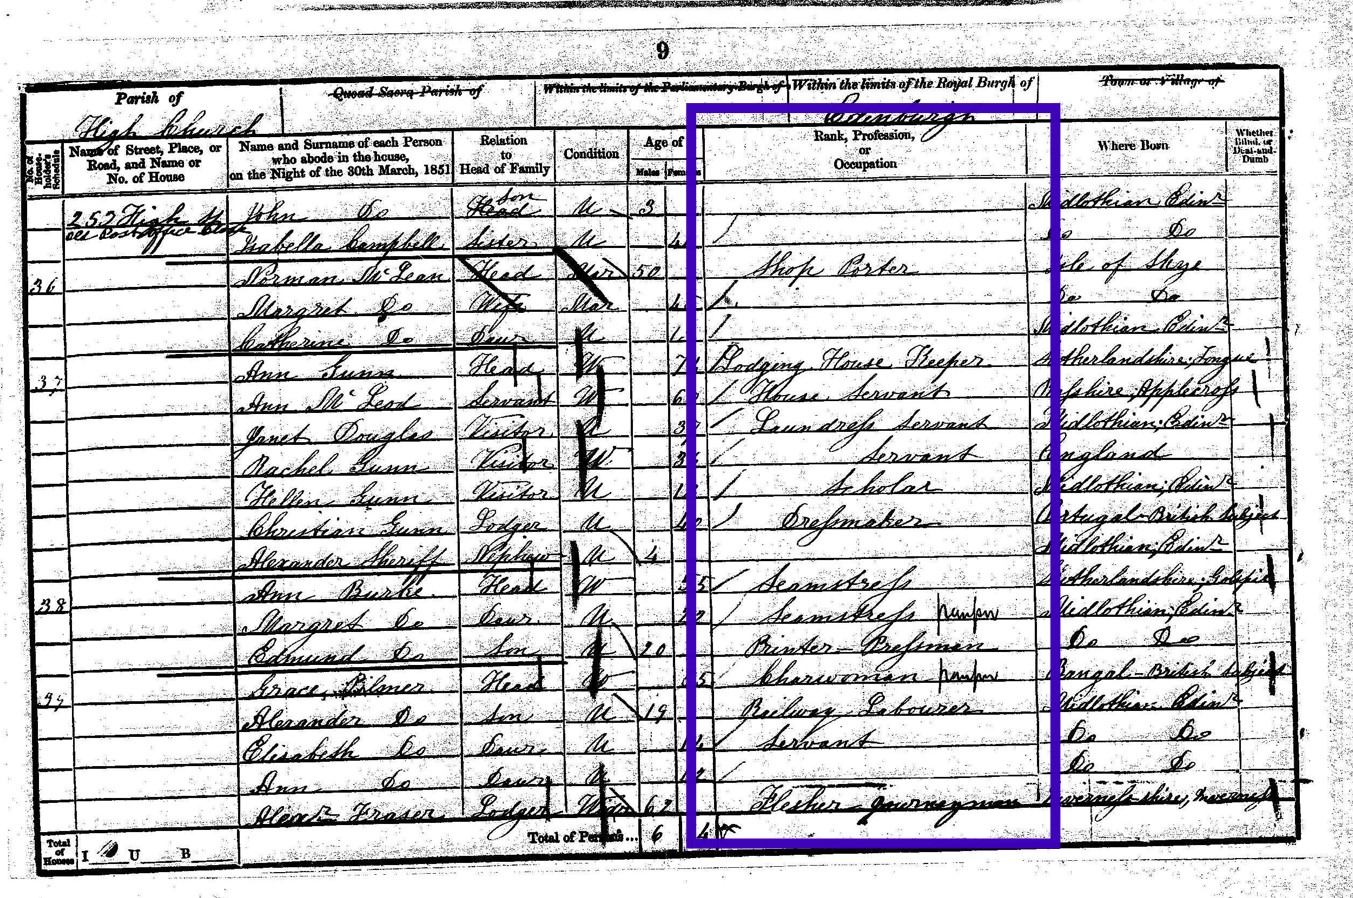 9
Parish of Quoad Sacra Parish of Within the limits of the Parliamentary Burgh of Within the limits of the Royal Burgh of Town or Village of
High Church Edinburgh
No. of House-holder's Schedule Name of Street, Place, or Road, and Name or No. of House Name and Surname of each Person who abode in the house, on the Night of the 30th March, 1851 Relation to Head of Family Condition Age of Males Females Rank, Profession, or Occupation Where Born Whether Blind, or Deaf-and-Dumb
252 High St John Do Head son U 3 Midlothian Edinr
Old Post Office Close Isabella Campbell Sister U Do Do
36 Norman McLean Head Mar 50 Shop Porter Isle of Skye
Margret Do Wife Mar Do Do
Catherine Do Daur U Midlothian Edinr
37 Ann Gunn Head W Lodging House Keeper Sutherlandshire; Tongue
Ann McLeod Servant W House Servant Rossshire, Applecross
Janet Douglas Visitor U Laundress Servant Midlothian; Edinr
Rachel Gunn Visitor W Servant England
Hellen Gunn Visitor U Scholar Midlothian; Edinr
Christian Gunn Lodger U 40 Dressmaker Portugal - British Subject
Alexander Sheriff Nephew U 4 Midlothian; Edinr
38 Ann Burke Head W 55 Seamstress Sutherlandshire; Golspie
Margret Do Daur U 22 Seamstress Midlothian; Edinr
Edmund Do Son U 20 Printer - Pressman Do Do
39 Grace Palmer Head W Charwoman Bangal - British Subject
Alexander Do Son U 19 Railway Labourer Midlothian Edinr
Elisabeth Do Daur U 14 Servant Do Do
Ann Do Daur U 12 Do Do
Alexr Fraser Lodger Widr 62 Flesher journeyman Invernessshire, Inverness
Total of Houses I U B Total of Persons... 6